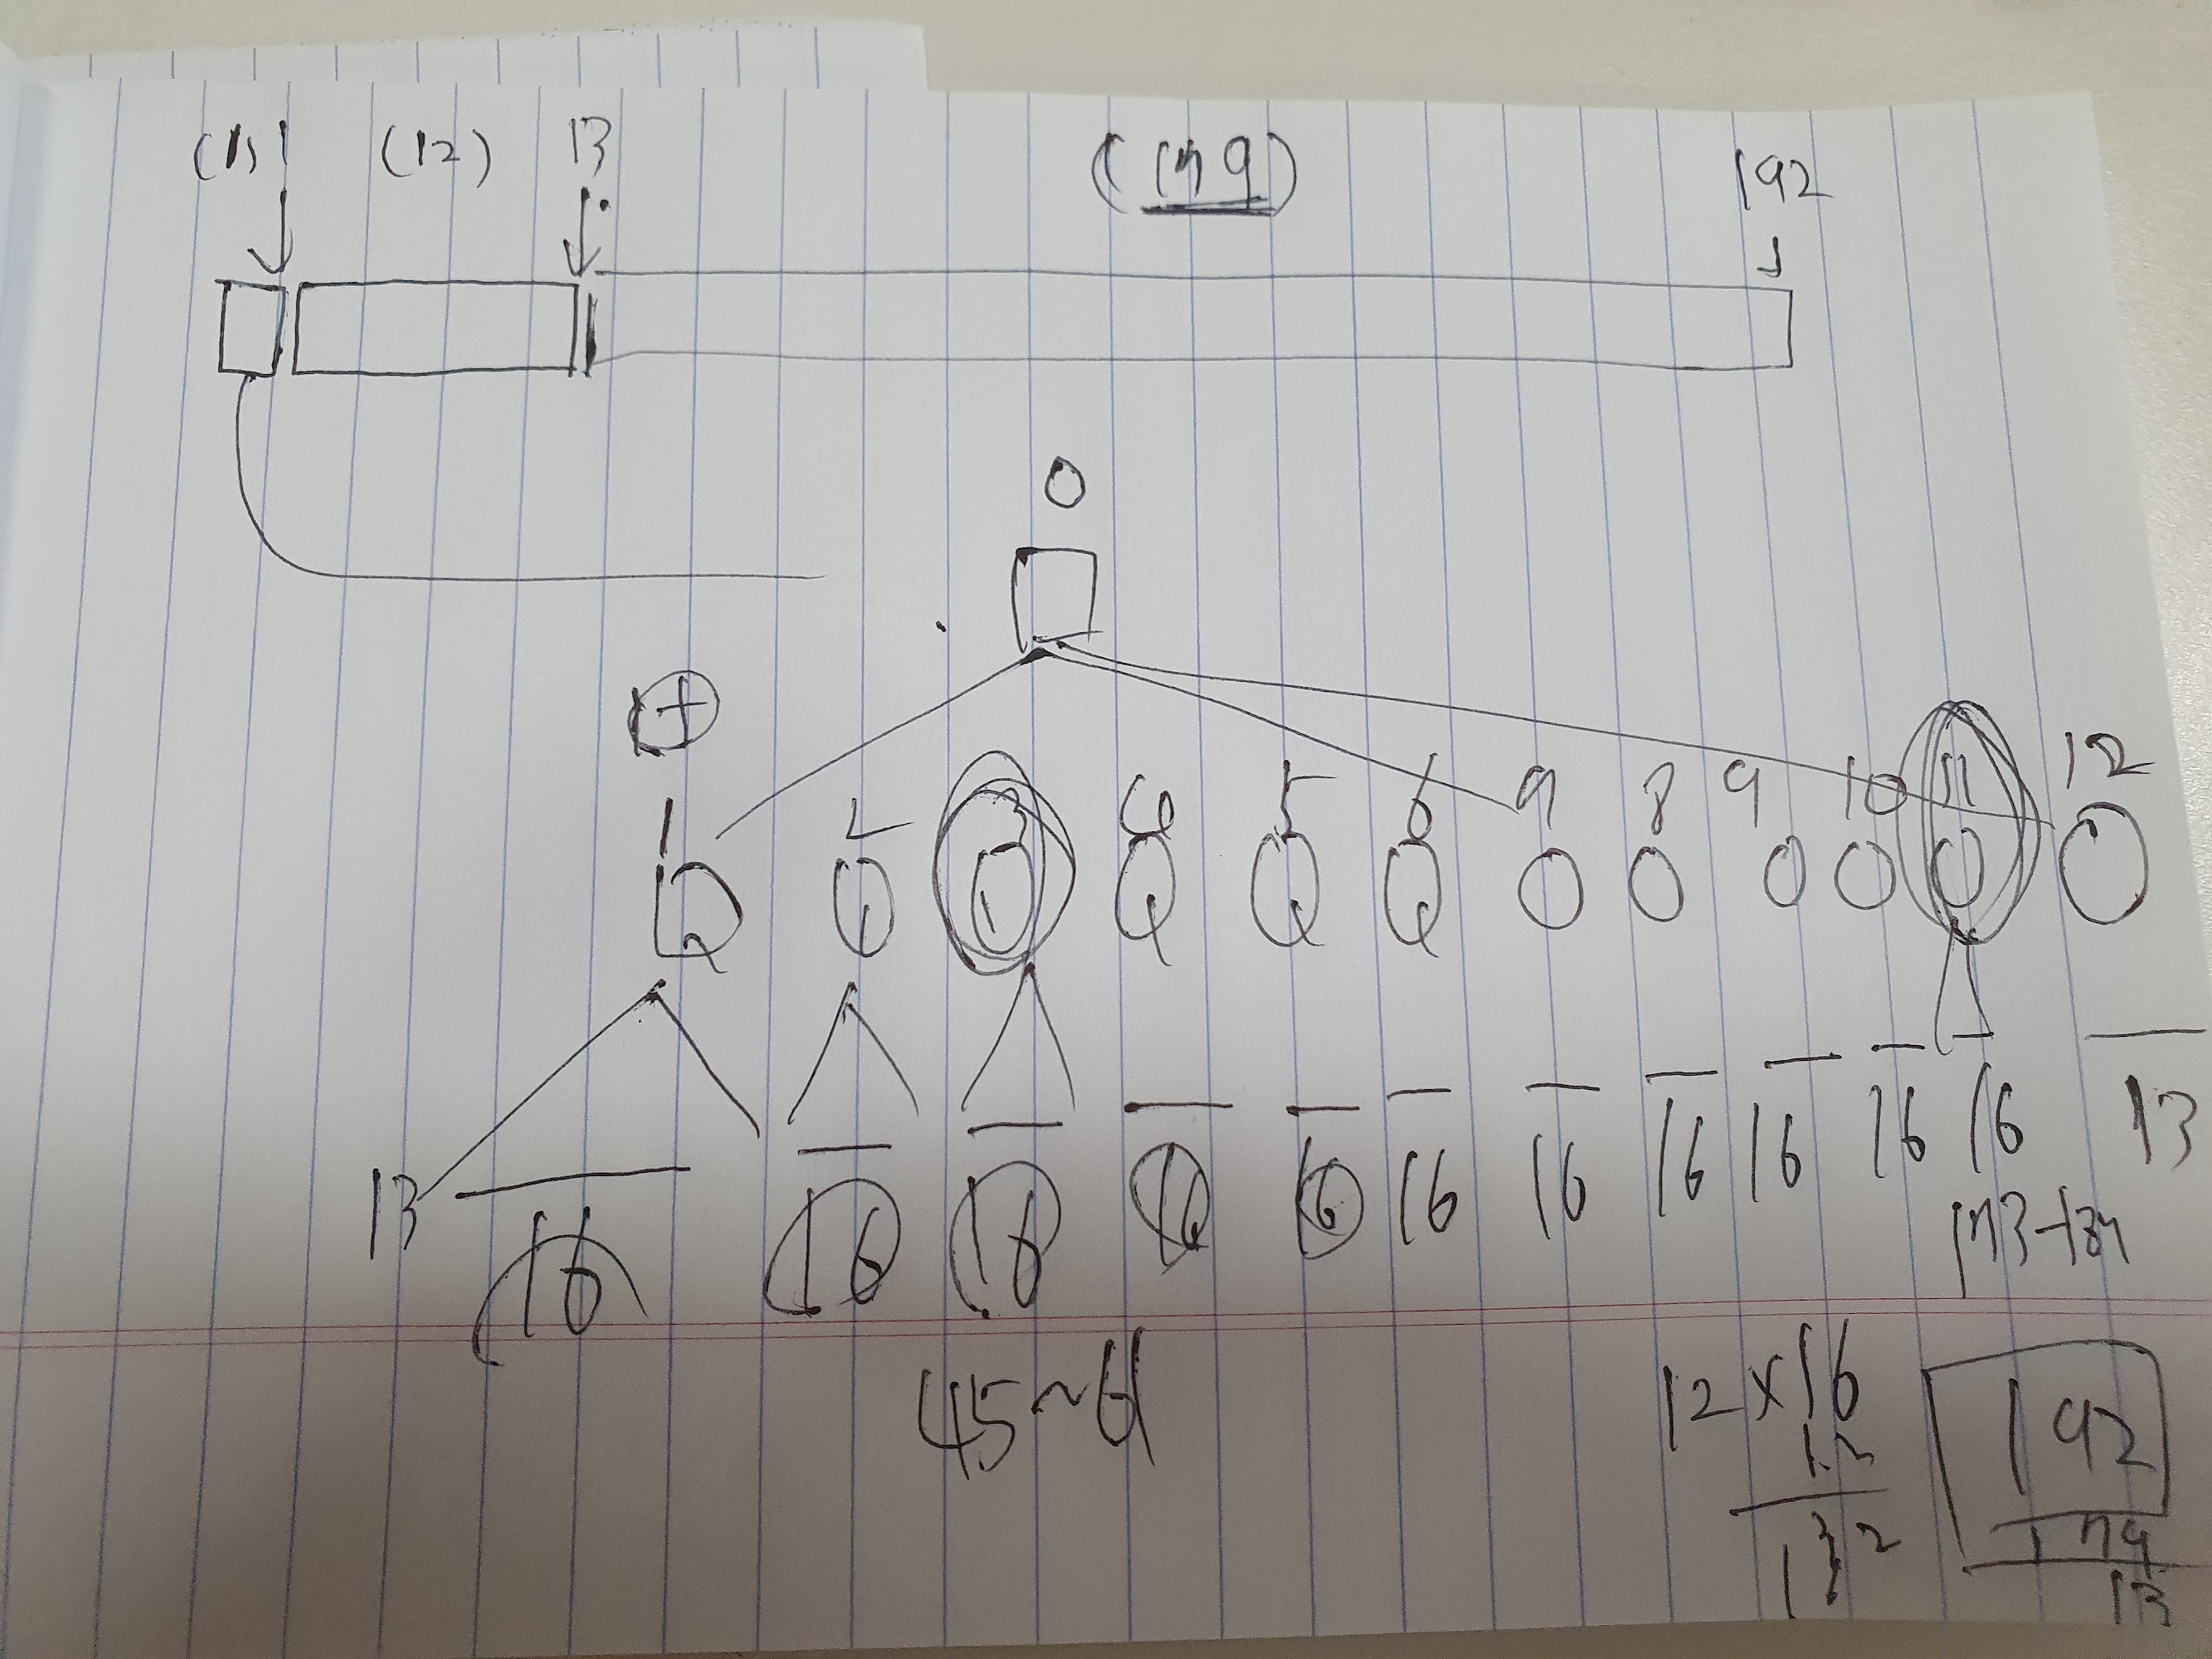 (1) 1 (12) 13 (179) 192
0
1+
1 2 3 4 5 6 7 8 9 10 11 12
13 16 16 16 16 16 16 16 16 16 16 16 13
173-187
45~61
12x16
192
132
179
13